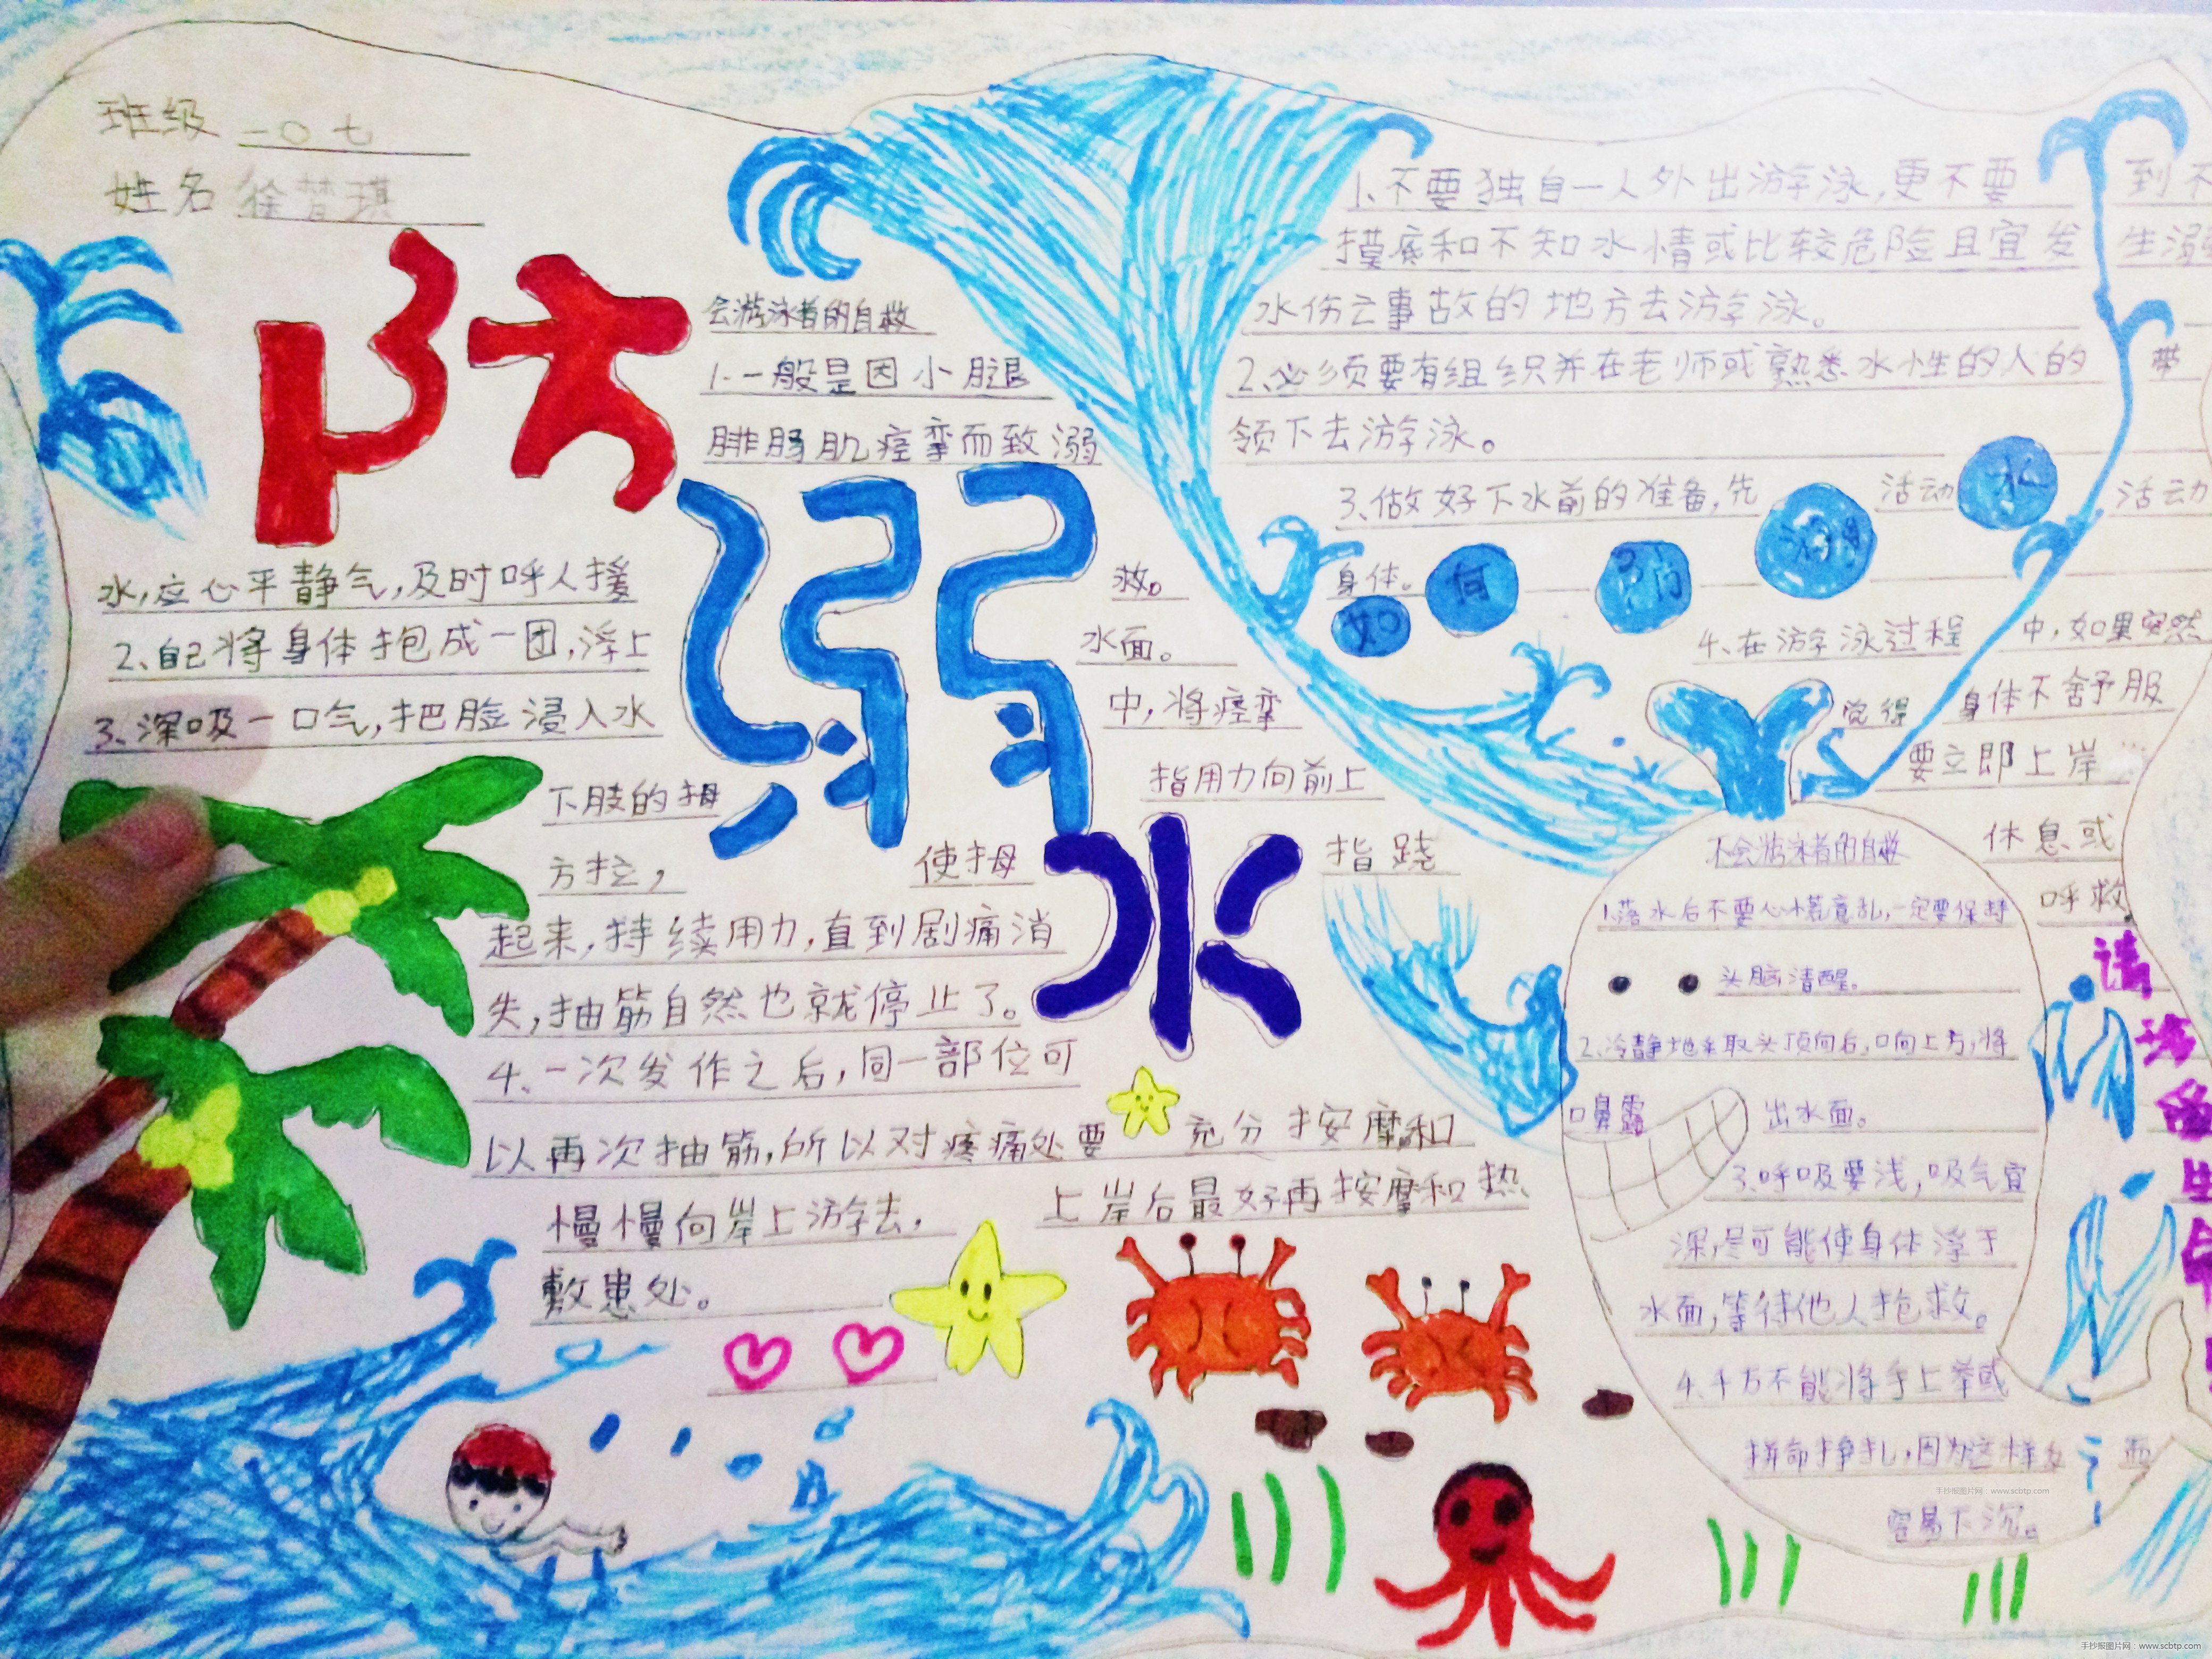 班级 二〇七
姓名 徐梦琪
防溺水
会游泳者的自救
1.一般是因小腿
腓肠肌痉挛而致溺
水,应心平静气,及时呼人援救。
2、自己将身体抱成一团,浮上水面。
3、深吸一口气,把脸浸入水中,将痉挛
下肢的拇指用力向前上
方拉,使拇指跷
起来,持续用力,直到剧痛消
失,抽筋自然也就停止了。
4、一次发作之后,同一部位可
以再次抽筋,所以对疼痛处要充分按摩和
慢慢向岸上游去,上岸后最好再按摩和热
敷患处。
如何防溺水
1.不要独自一人外出游泳,更不要到不
摸底和不知水情或比较危险且宜发生溺
水伤亡事故的地方去游泳。
2、必须要有组织并在老师或熟悉水性的人的带
领下去游泳。
3、做好下水前的准备,先活动活动
身体。
4、在游泳过程中,如果突然
觉得身体不舒服
要立即上岸
休息或
呼救
不会游泳者的自救
1.落水后不要心慌意乱,一定要保持
头脑清醒。
2、冷静地采取头顶向后,口向上方,将
口鼻露出水面。
3、呼吸要浅,吸气宜
深,尽可能使身体浮于
水面,等待他人抢救。
4、千万不能将手上举或
拼命挣扎,因为这样反而
容易下沉。
请珍爱生命
手抄报图片网:www.scbtp.com
手抄报图片网:www.scbtp.com